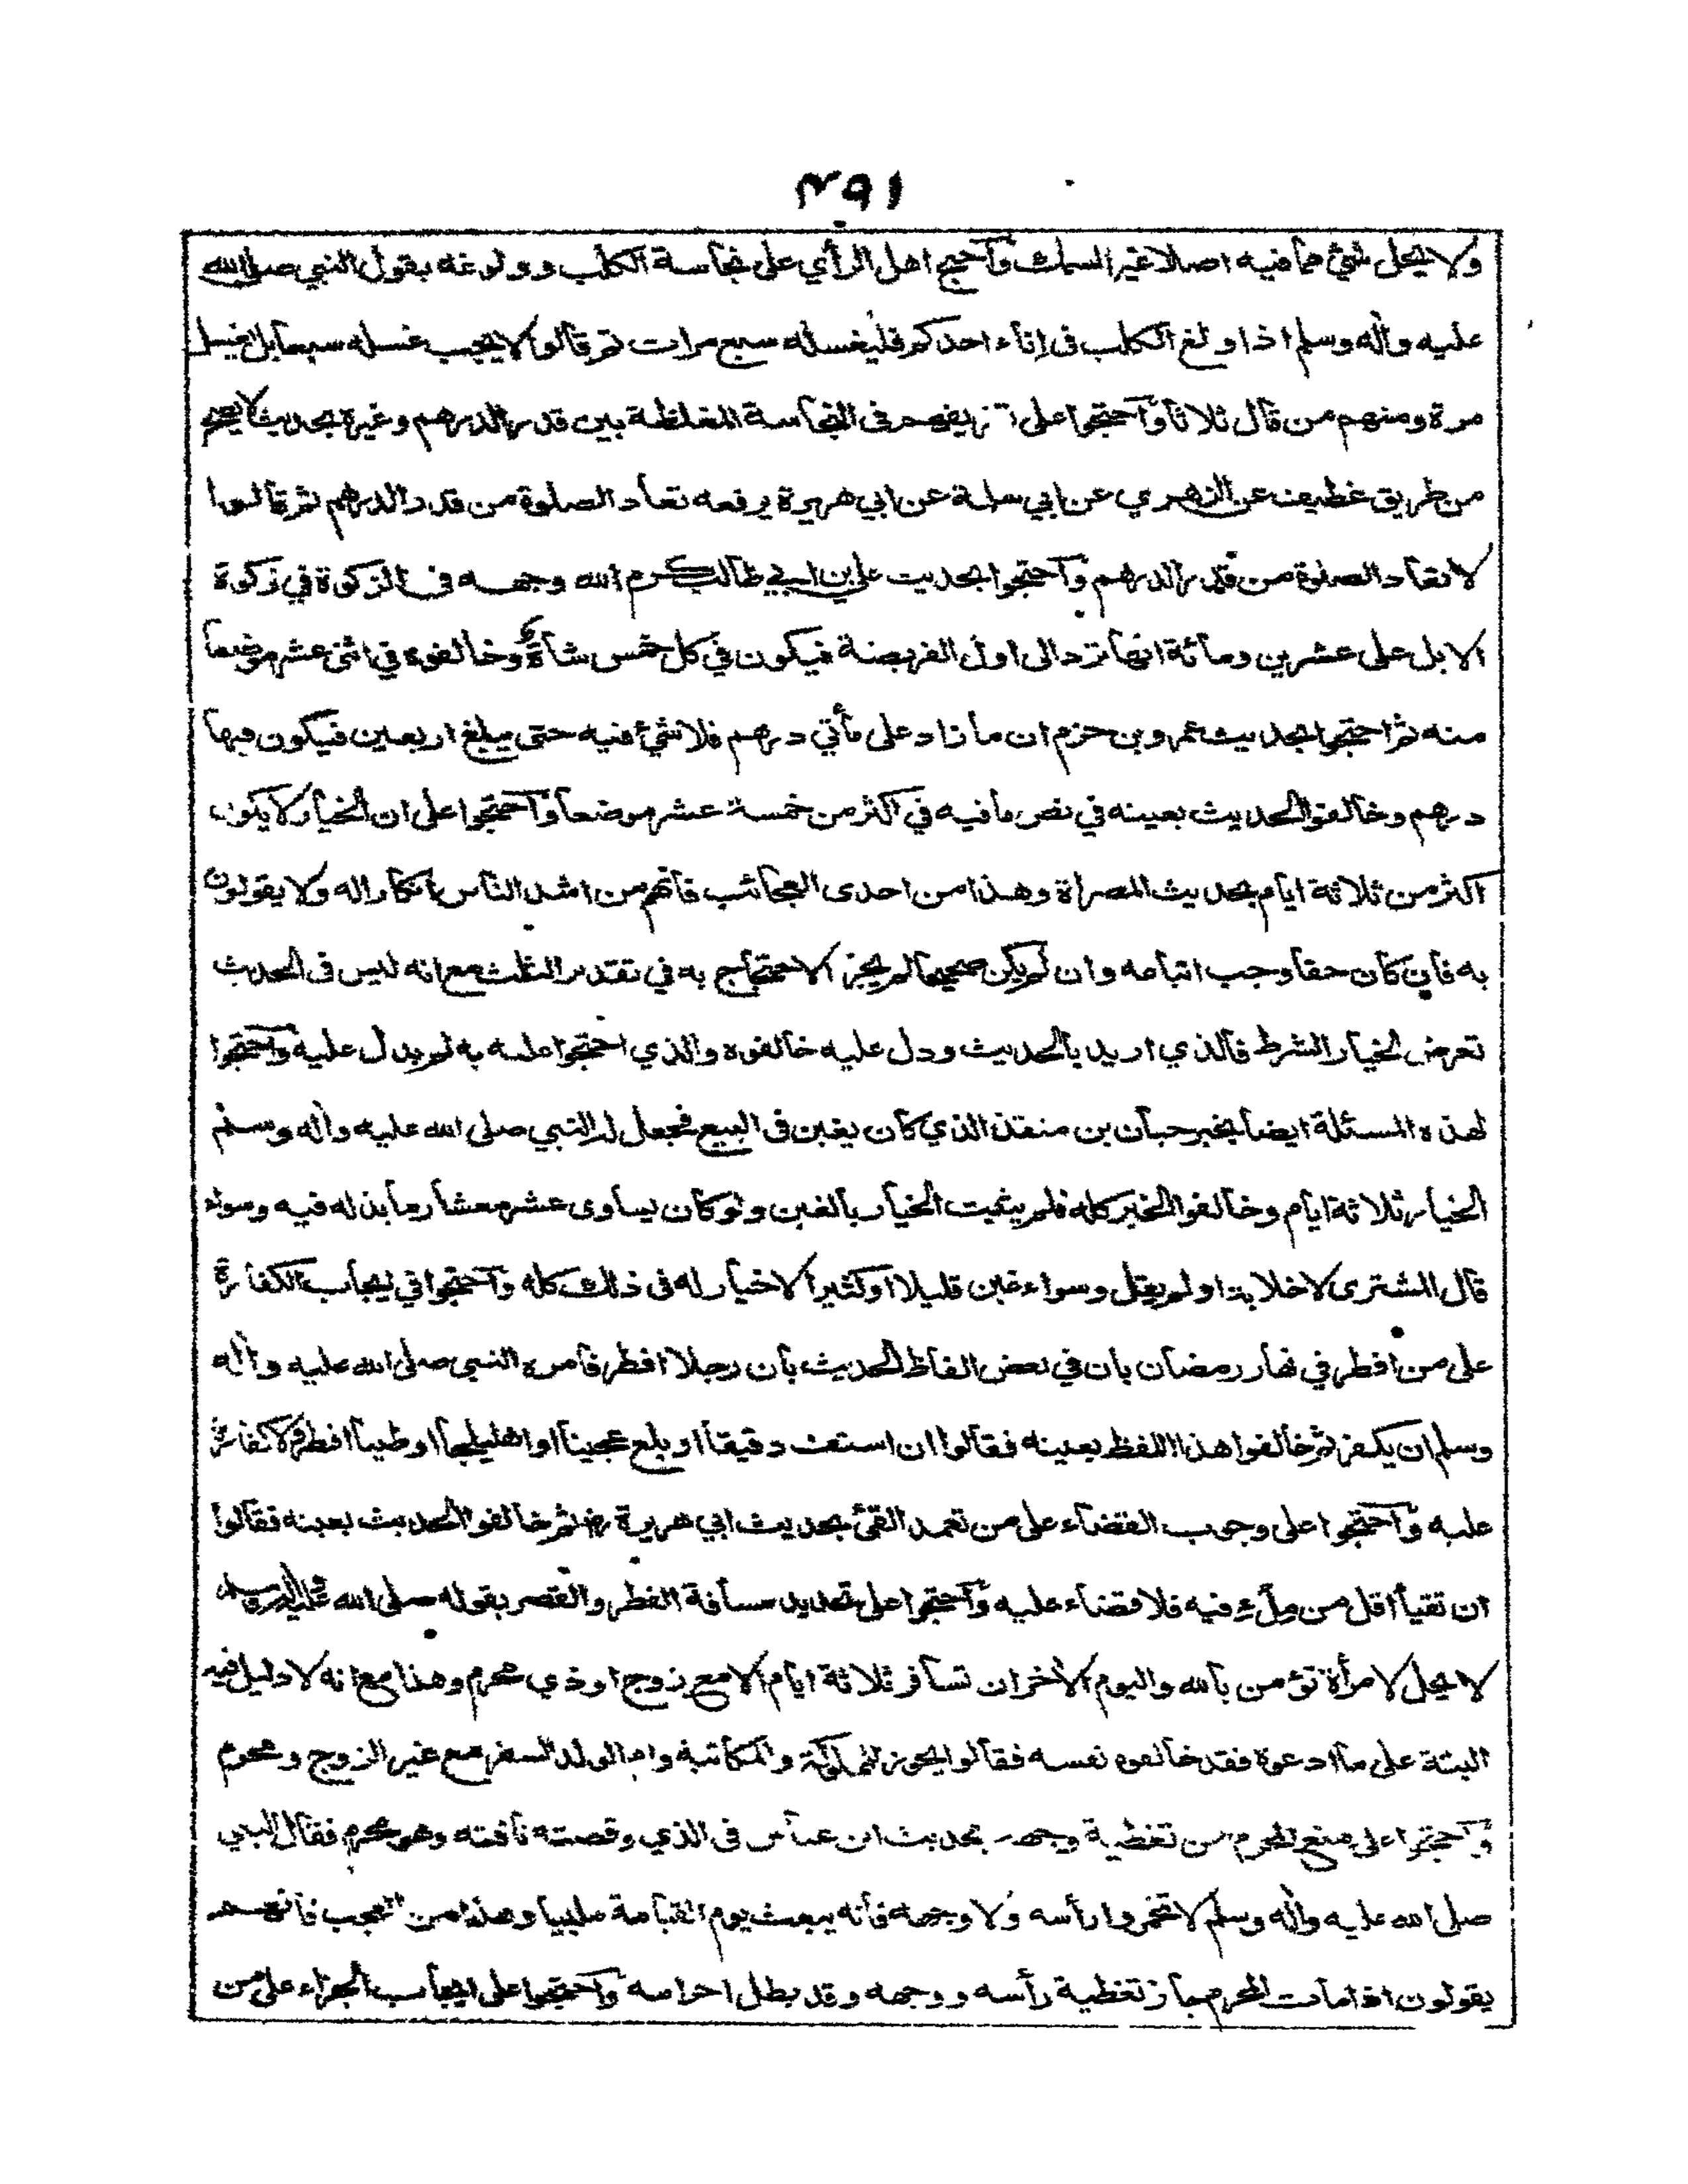 ٤٩١
ولا يحل شئ مما فيه اصلا غير السمك واحتج اهل الرأي على نجاسة الكلب وولوغه بقول النبي صلى الله
عليه وآله وسلم اذا ولغ الكلب فى إناء احدكم فليغسله سبع مرات ثم قالوا لا يجب غسله سبعا بل يغسل
مرة ومنهم من قال ثلاثا واحتجوا على تفريقهم فى النجاسة المغلظة بين قدر الدرهم وغيره بحديث لا يصح
من طريق غطيف عن الزهري عن ابي سلمة عن ابي هريرة يرفعه تعاد الصلوة من قدر الدرهم ثم قالوا
لا تعاد الصلوة من قدر الدرهم واحتجوا بحديث علي بن ابي طالب كرم الله وجهه فى الزكوة في زكوة
الابل على عشرين ومائة انها ترد الى اول الفريضة فيكون في كل خمس شاة وخالفوه في اثنى عشر موضعا
منه ثم احتجوا بحديث عمرو بن حزم ان ما زاد على مأتي درهم فلا شئ فيه حتى يبلغ اربعين فيكون فيها
درهم وخالفوا الحديث بعينه في نص ما فيه في اكثر من خمسة عشر موضعا واحتجوا على ان الخيار لا يكون
اكثر من ثلاثة ايام بحديث المصراة وهذا من احدى العجائب فانهم من اشد الناس انكارا له ولا يقولون
به فان كان حقا وجب اتباعه وان لم يكن صحيحا لم يجز الاحتجاج به في تقدير الثلث مع انه ليس فى الحديث
تعرض لخيار الشرط فالذي اريد بالحديث ودل عليه خالفوه والذي احتجوا عليه به لم يدل عليه واحتجوا
لهذه المسئلة ايضا بخبر حبان بن منقذ الذي كان يغبن فى البيع فجعل له النبي صلى الله عليه وآله وسلم
الخيار ثلاثة ايام وخالفوا الخبر كله فلم يثبت الخيار بالغبن ولو كان يساوى عشر معشار ما بذله فيه وسواء
قال المشترى لا خلابة او لم يقل وسواء غبن قليلا او كثيرا لا خيار له فى ذلك كله واحتجوا في ايجاب الكفارة
على من افطر في نهار رمضان بان في بعض الفاظ الحديث بان رجلا افطر فامره النبي صلى الله عليه وآله
وسلم ان يكفر ثم خالفوا هذا اللفظ بعينه فقالوا ان استعت دقيقا او بلع عجينا او اهليلجا او طيبا افطر ولا كفارة
عليه واحتجوا على وجوب القضاء على من تعمد القئ بحديث ابي هريرة رض ثم خالفوا الحديث بعينه فقالوا
ان تقيأ اقل من ملء فيه فلا قضاء عليه واحتجوا على تحديد مسافة الفطر والقصر بقوله صلى الله عليه وآله وسلم
لا يحل لامرأة تؤمن بالله واليوم الآخر ان تسافر ثلاثة ايام الا مع زوج او ذي محرم وهذا مع انه لا دليل فيه
البتة على ما ادعوه فقد خالفوه نفسه فقالوا يجوز للمملوكة والمكاتبة وام الولد السفر مع غير الزوج ومحرم
واحتجوا على منع المحرم من تغطية وجهه بحديث ابن عباس فى الذي وقصته ناقته وهو محرم فقال النبي
صلى الله عليه وآله وسلم لا تخمروا رأسه ولا وجهه فانه يبعث يوم القيامة ملبيا وهذا من العجب فانهم
يقولون اذا مات المحرم جاز تغطية رأسه ووجهه وقد بطل احرامه واحتجوا على ايجاب الجزاء على من